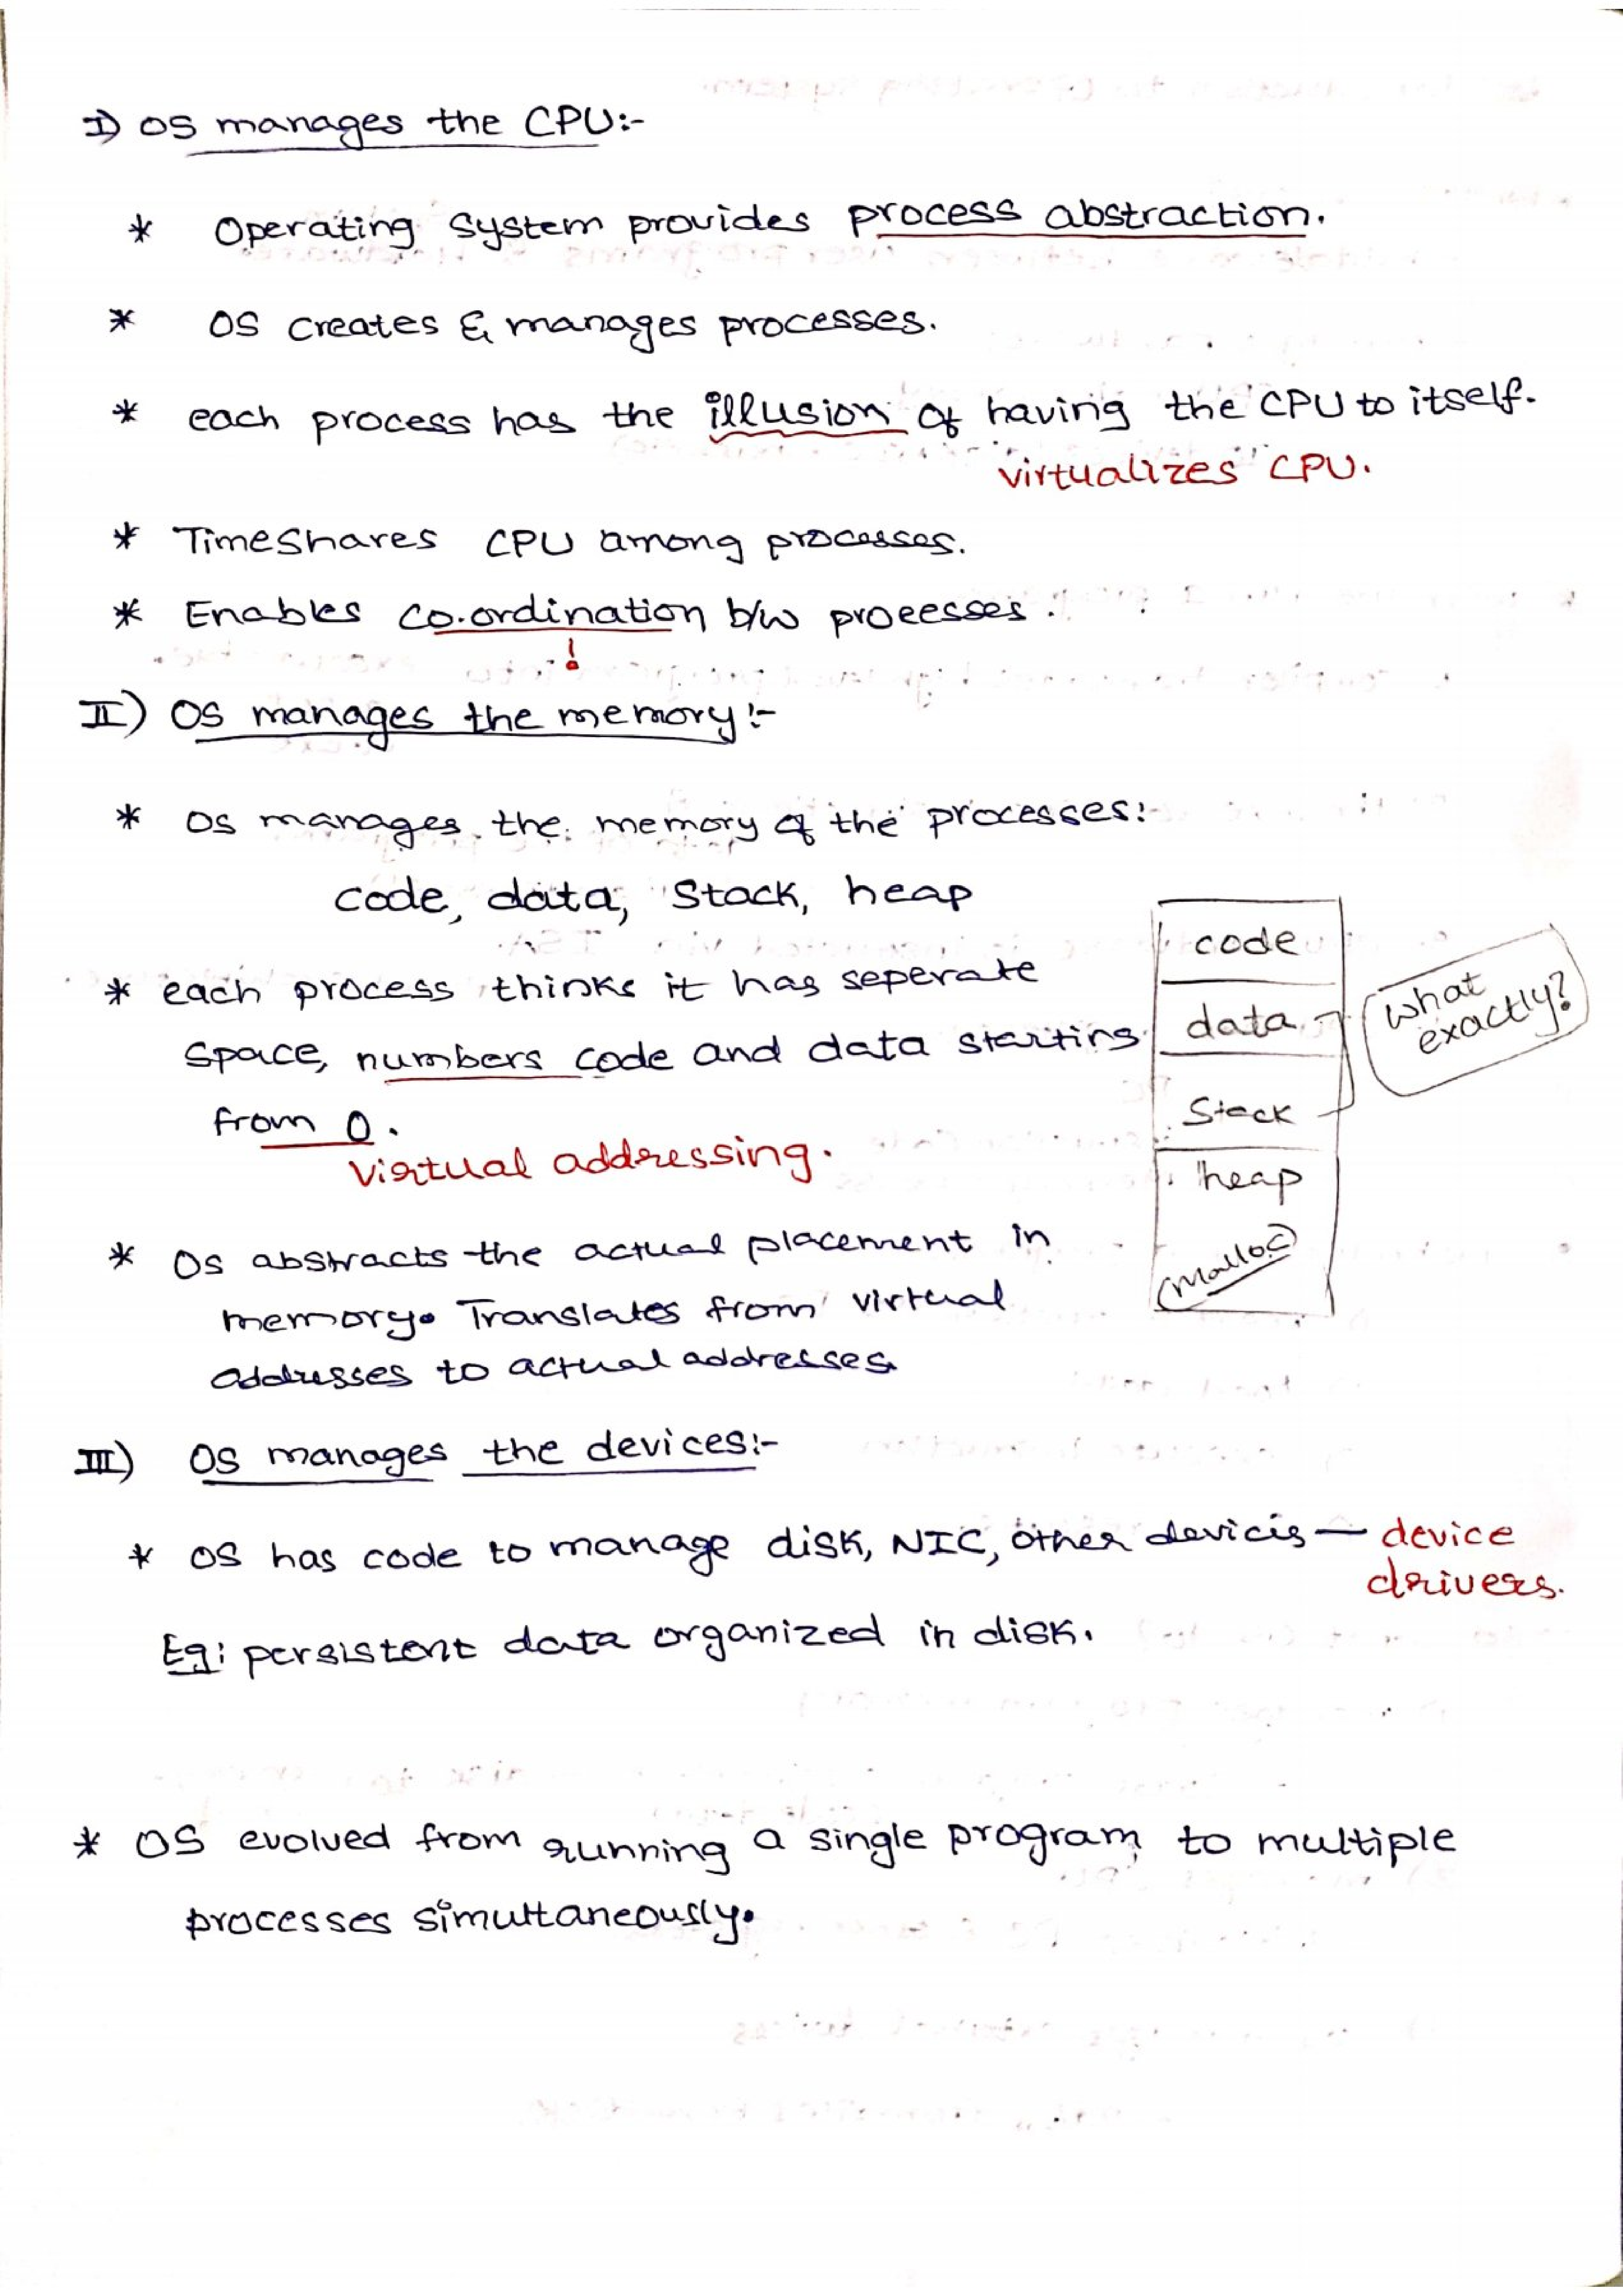 I) OS manages the CPU:-
* Operating System provides process abstraction.
* OS creates & manages processes.
* each process has the illusion of having the CPU to itself.
virtualizes CPU.
* Timeshares CPU among processes.
* Enables co.ordination b/w processes.
!
II) OS manages the memory:-
* OS manages the memory of the processes:
code, data, Stack, heap
* each process thinks it has seperate
space, numbers code and data starting
from 0.
virtual addressing.
code
data
Stack
heap
(Malloc)
what
exactly?
* OS abstracts the actual placement in
memory. Translates from virtual
addresses to actual addresses.
III) OS manages the devices:-
* OS has code to manage disk, NIC, other devices — device
drivers.
Eg: persistent data organized in disk.
* OS evolved from running a single program to multiple
processes simultaneously.